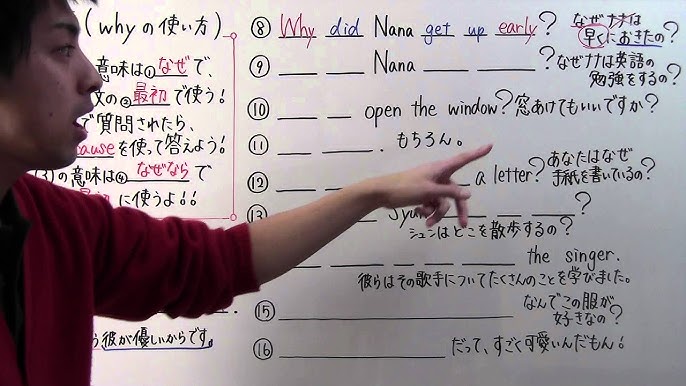 (whyの使い方)
意味は①なぜで、
文の②最初で使う!
で質問されたら、
causeを使って答えよう!
(3)の意味は④なぜならで
最初に使うよ!!
う彼が優しいからです。
⑧ Why did Nana get up early? なぜナナは早くにおきたの?
⑨ Nana ? なぜナナは英語の勉強をするの?
⑩ open the window? 窓あけてもいいですか?
⑪ . もちろん。
⑫ a letter? あなたはなぜ手紙を書いているの?
⑬ Syun ?
シュンはどこを散歩するの?
the singer.
彼らはその歌手についてたくさんのことを学びました。
⑮ なんでこの服が好きなの?
⑯ だって、すごく可愛いんだもん!